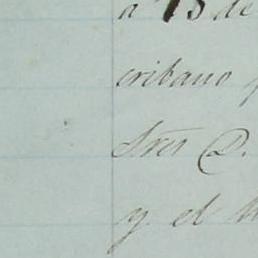 a 15 de
cribano
Sres D.
y el